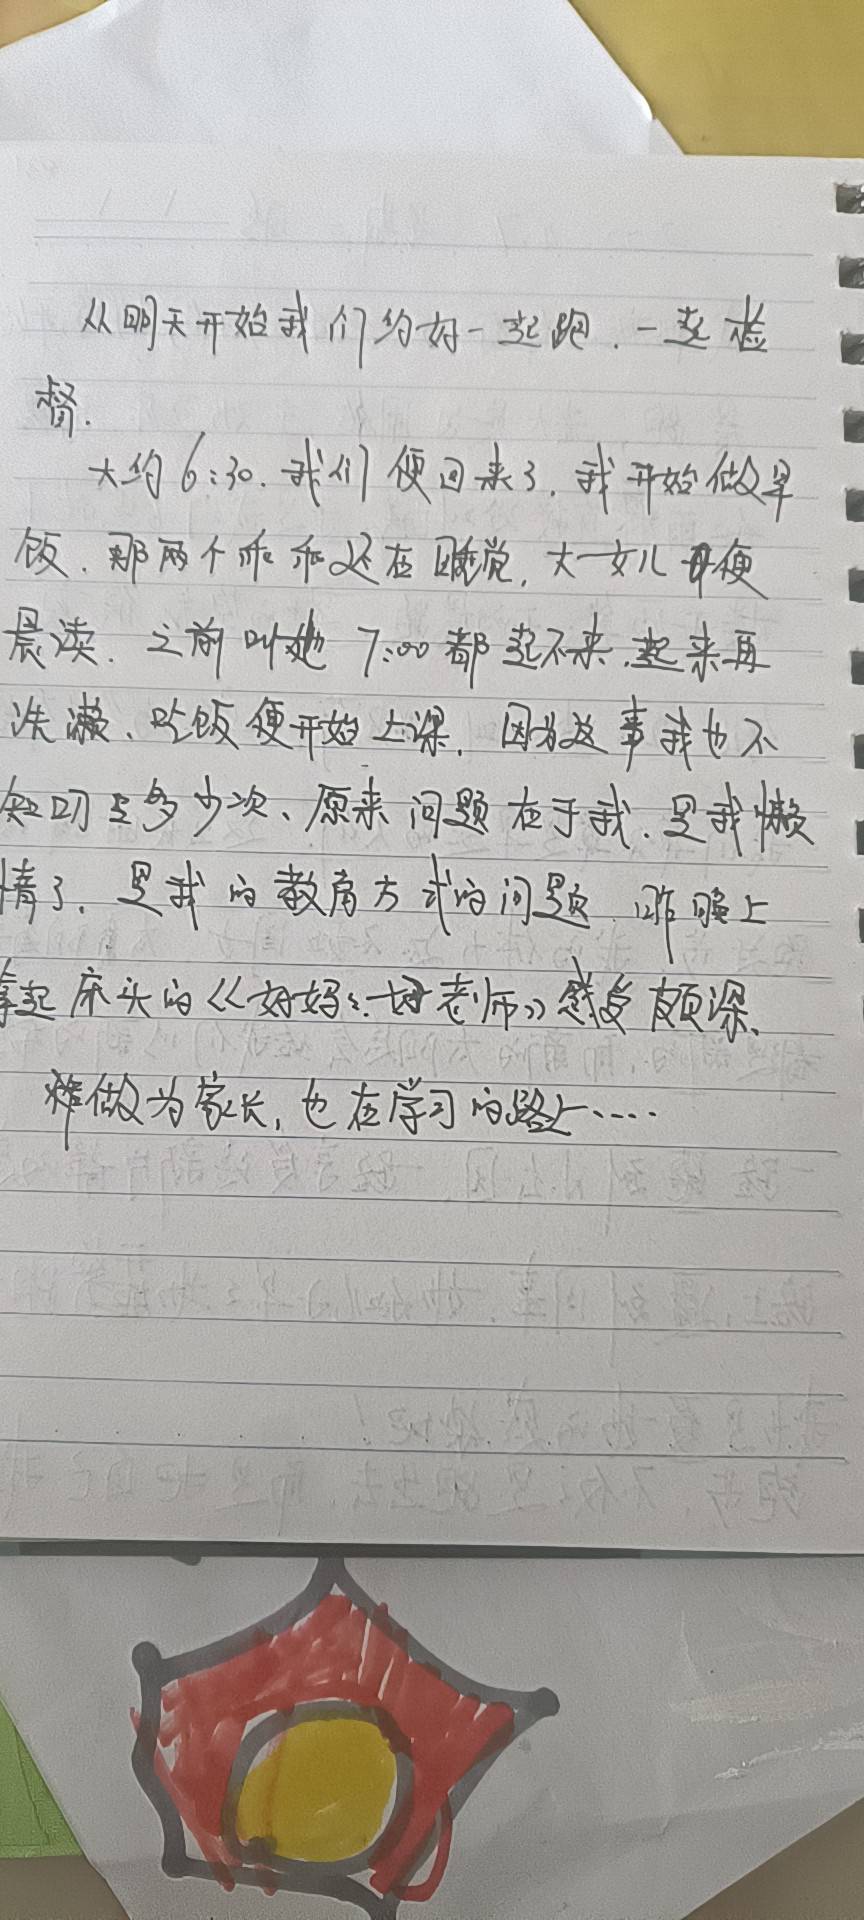 从明天开始我们约好一起跑.一起监
督.
大约6:30.我们便回来了.我开始做早
饭.那两个乖乖还在睡觉,大女儿便
晨读.之前叫她7:00都起不来.起来再
洗漱、吃饭便开始上课.因为这事我也不
知叨多少次、原来问题在于我.是我懒
惰了.是我的教育方式的问题.昨晚上
拿起床头的《好妈妈好老师》感受颇深、
做为家长,也在学习的路上……